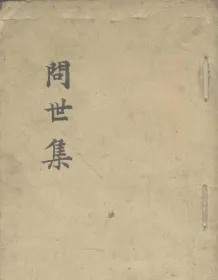 問世集